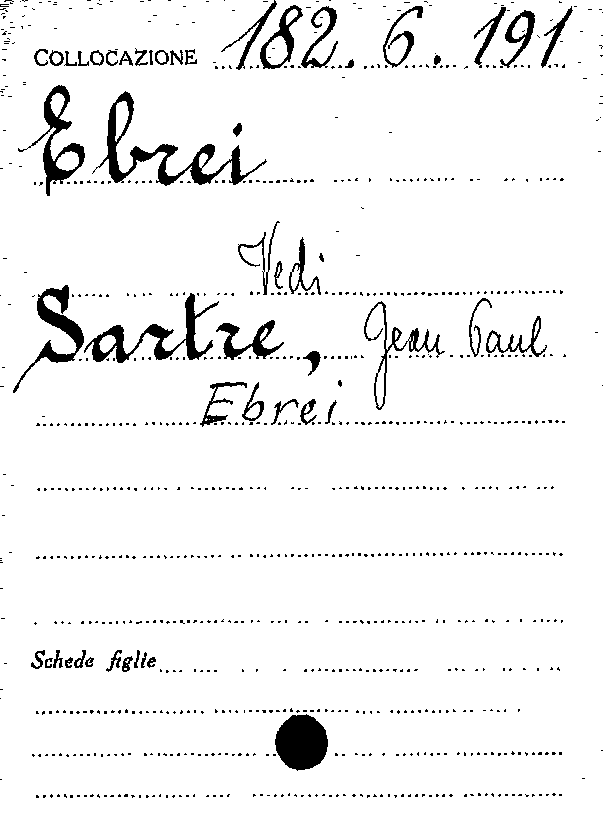 COLLOCAZIONE 182.6.191
Ebrei
Vedi
Sartre, Jean Paul
Ebrei
Schede figlie